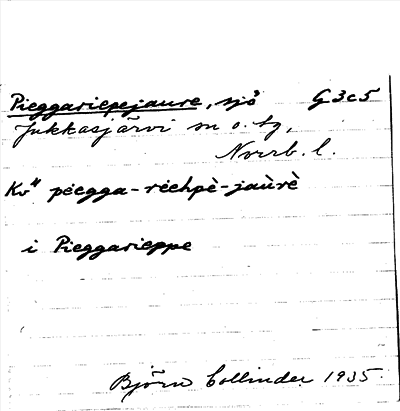 Pieggariepejaure, sjö G3c5
Jukkasjärvi sn o. tg,
Norrb. l.
Kv" péegga-riehpè-jaùrè
i Pieggarieppe
Björn Collinder 1935.